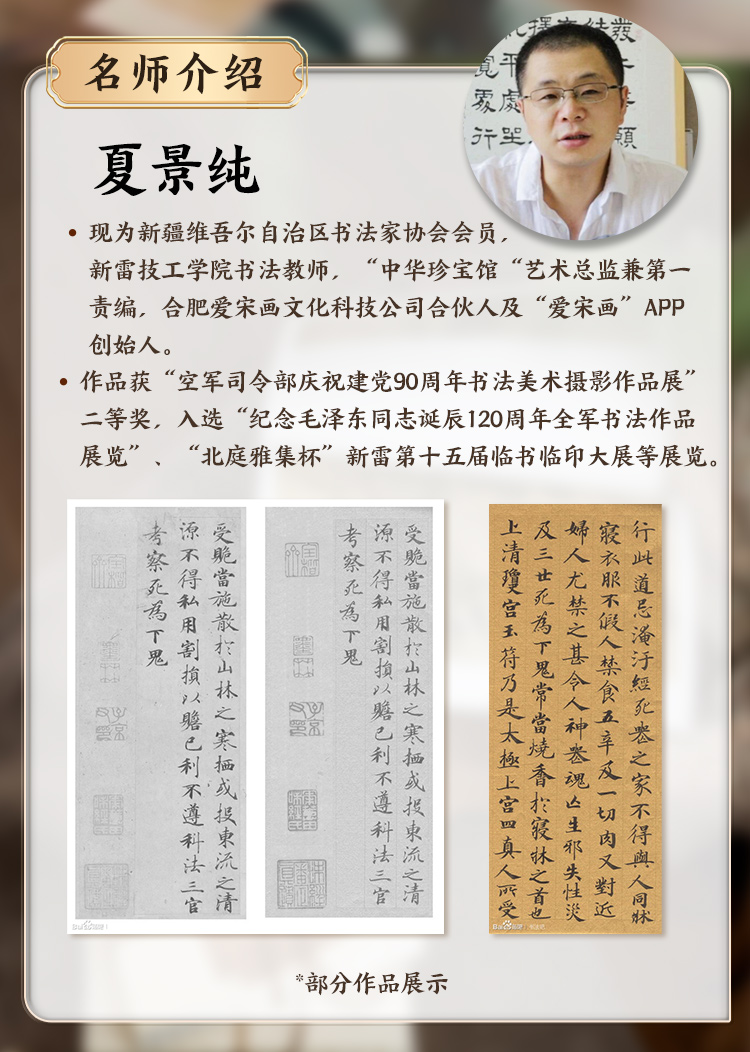 名师介绍
夏景纯
• 现为新疆维吾尔自治区书法家协会会员，
新雷技工学院书法教师，“中华珍宝馆“艺术总监兼第一
责编，合肥爱宋画文化科技公司合伙人及“爱宋画”APP
创始人。
• 作品获“空军司令部庆祝建党90周年书法美术摄影作品展”
二等奖，入选“纪念毛泽东同志诞辰120周年全军书法作品
展览”、“北庭雅集杯”新雷第十五届临书临印大展等展览。
受當施散於山林之寒栖或投東流之清
源不得私用割損以贍己利不遵科法三官
考察死為下鬼
受當施散於山林之寒栖或投東流之清
源不得私用割損以贍己利不遵科法三官
考察死為下鬼
行此道忌淹汙經死喪之家不得與人同牀
寢衣服不假人禁食五辛及一切肉又對近
婦人尤禁之甚令人神喪魂亡生邪失性災
及三世死為下鬼常當燒香於寢牀之首也
上清瓊宮玉符乃是太極上宮四真人所受
*部分作品展示